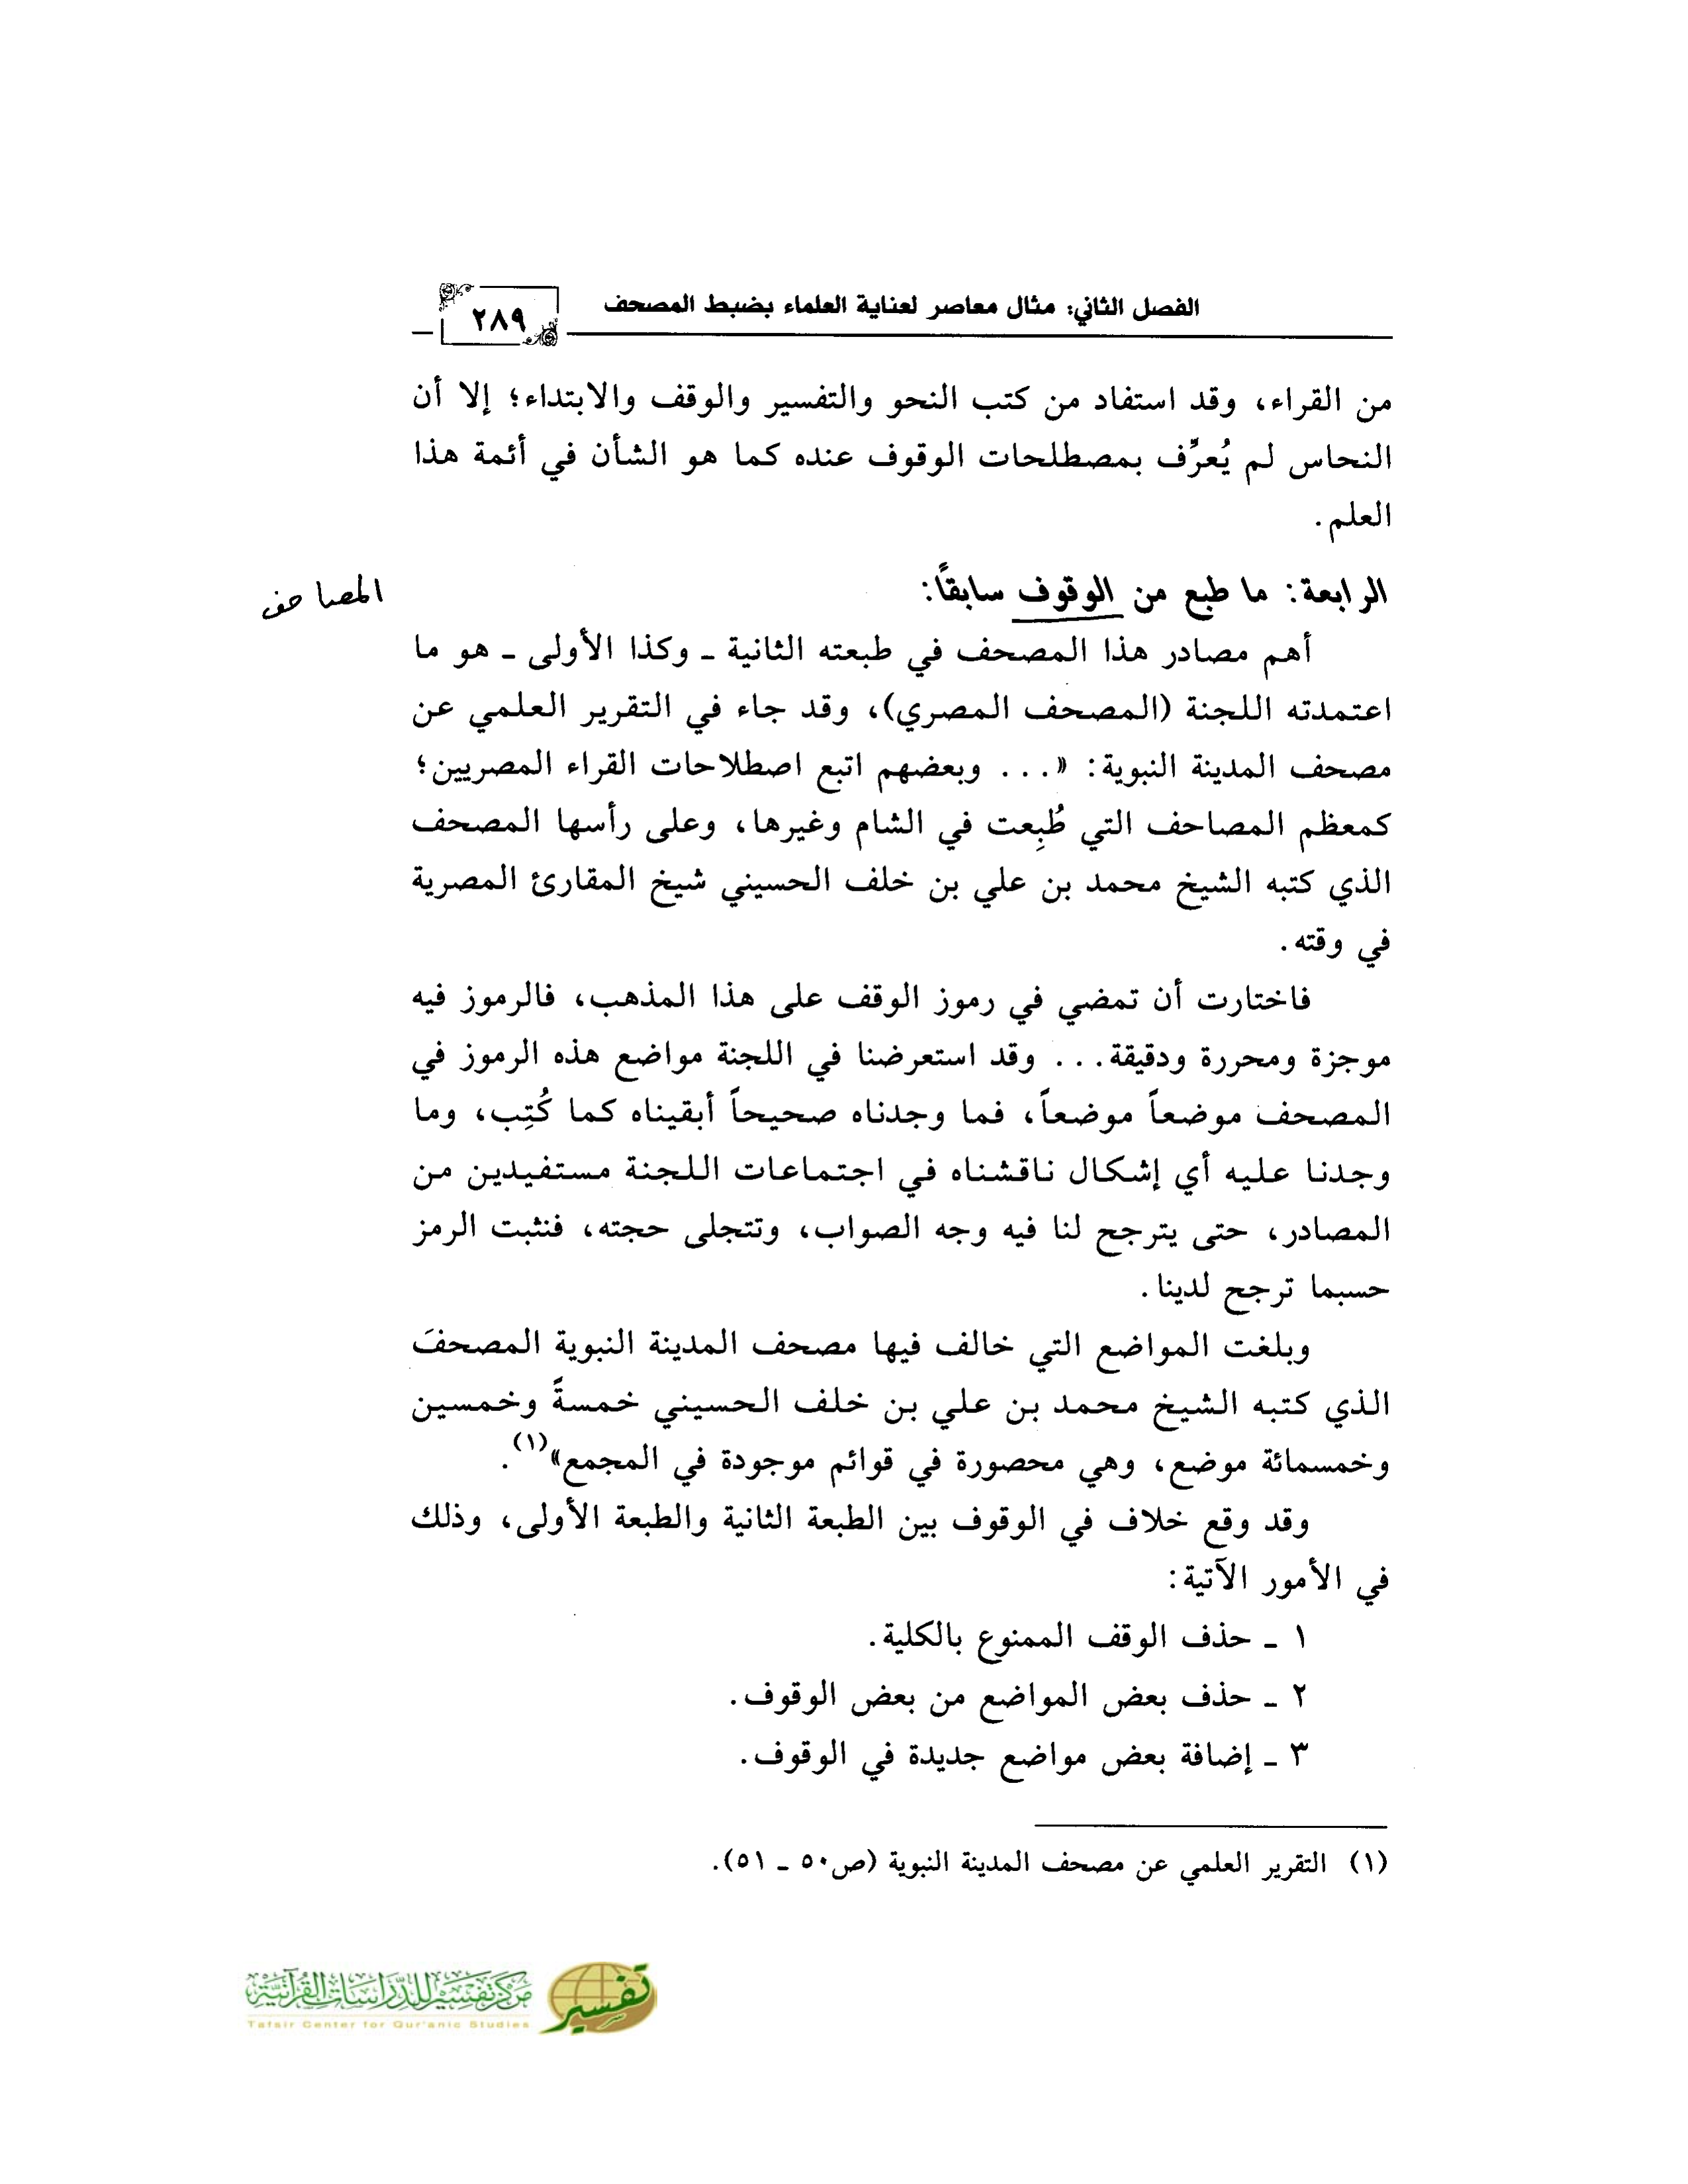 الفصل الثاني: مثال معاصر لعناية العلماء بضبط المصحف
٢٨٩
من القراء، وقد استفاد من كتب النحو والتفسير والوقف والابتداء؛ إلا أن
النحاس لم يُعرِّف بمصطلحات الوقوف عنده كما هو الشأن في أئمة هذا
العلم.
الرابعة: ما طبع من الوقوف سابقاً:
المصاحف
أهم مصادر هذا المصحف في طبعته الثانية ـ وكذا الأولى ـ هو ما
اعتمدته اللجنة (المصحف المصري)، وقد جاء في التقرير العلمي عن
مصحف المدينة النبوية: «... وبعضهم اتبع اصطلاحات القراء المصريين؛
كمعظم المصاحف التي طُبِعت في الشام وغيرها، وعلى رأسها المصحف
الذي كتبه الشيخ محمد بن علي بن خلف الحسيني شيخ المقارئ المصرية
في وقته.
فاختارت أن تمضي في رموز الوقف على هذا المذهب، فالرموز فيه
موجزة ومحررة ودقيقة... وقد استعرضنا في اللجنة مواضع هذه الرموز في
المصحف موضعاً موضعاً، فما وجدناه صحيحاً أبقيناه كما كُتِب، وما
وجدنا عليه أي إشكال ناقشناه في اجتماعات اللجنة مستفيدين من
المصادر، حتى يترجح لنا فيه وجه الصواب، وتتجلى حجته، فنثبت الرمز
حسبما ترجح لدينا.
وبلغت المواضع التي خالف فيها مصحف المدينة النبوية المصحفَ
الذي كتبه الشيخ محمد بن علي بن خلف الحسيني خمسةً وخمسين
وخمسمائة موضع، وهي محصورة في قوائم موجودة في المجمع»(١).
وقد وقع خلاف في الوقوف بين الطبعة الثانية والطبعة الأولى، وذلك
في الأمور الآتية:
١ ـ حذف الوقف الممنوع بالكلية.
٢ ـ حذف بعض المواضع من بعض الوقوف.
٣ ـ إضافة بعض مواضع جديدة في الوقوف.
(١) التقرير العلمي عن مصحف المدينة النبوية (ص٥٠ ـ ٥١).
تفسير
مركز تفسير للدراسات القرآنية
Tafsir Center for Qur'anic Studies